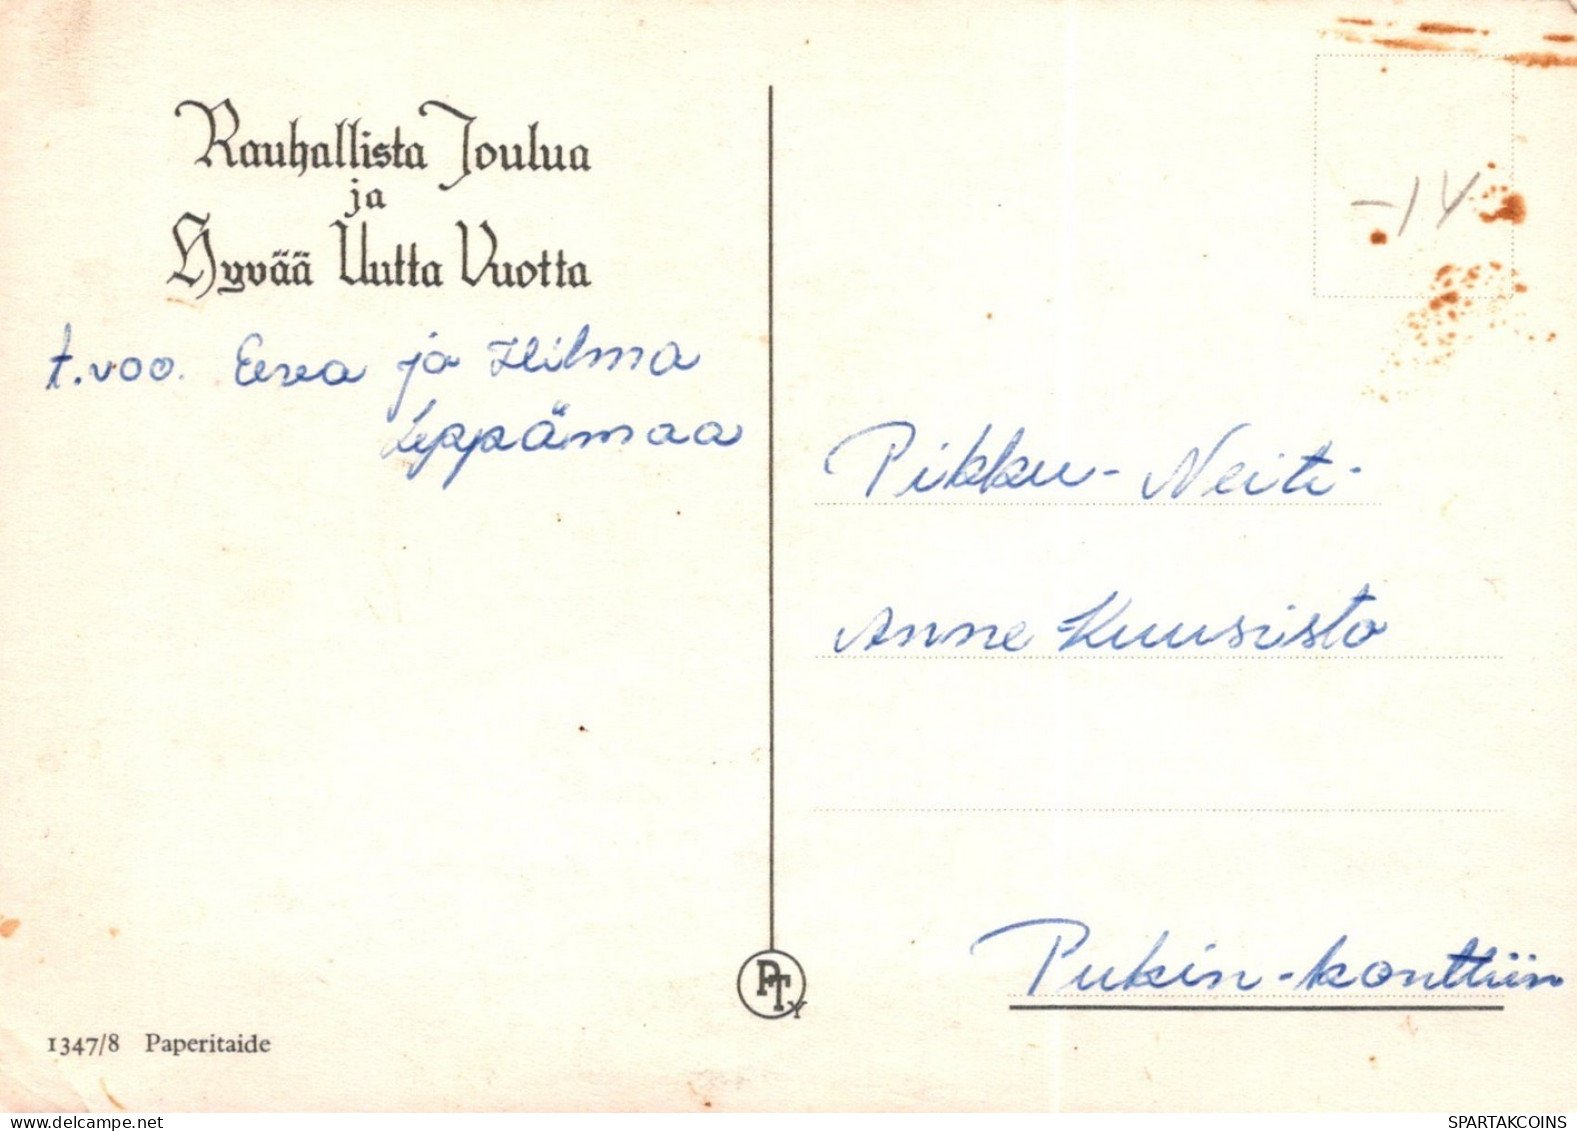 Rauhallista Joulua
ja
Hyvää Uutta Vuotta
t.voo. Eeva ja Hilma
Leppämaa
-14
Pikku-Neiti
Anne Kuusisto
Pukin-konttiin
PTY
1347/8 Paperitaide
delcampe.net
SPARTAKCOINS